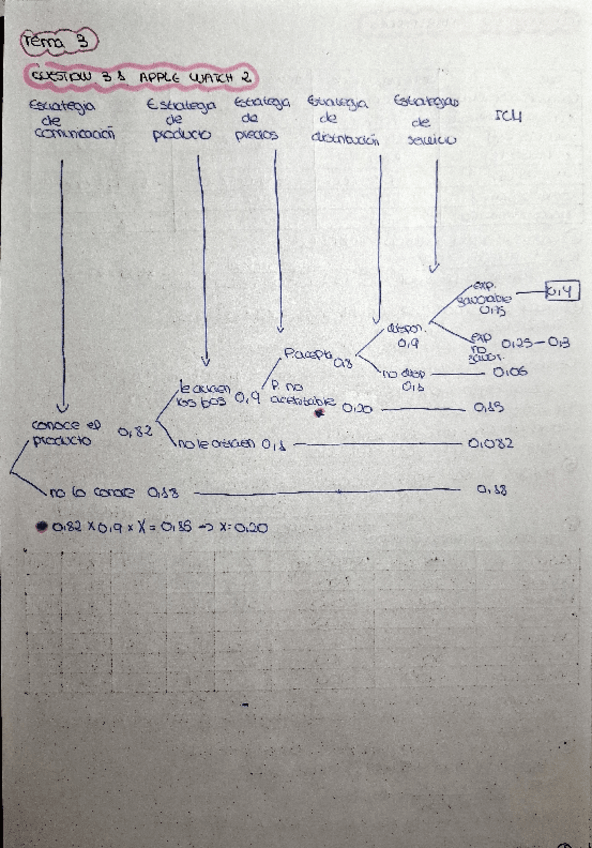 Tema 3
CUESTION 3.1 APPLE WATCH 2
Estrategia de comunicación
Estrategia de producto
Estrategia de precios
Estrategia de distribución
Estrategias de servicio
ICU
exp. favorable 0,75
0,4
dispon. 0,9
exp no favor. 0,25 - 0,13
P. acepta 0,8
no disp 0,1
0,06
le atraen los bas 0,9
P. no aceptable
0,20
0,15
conoce el producto 0,82
no le atraen 0,1
0,082
no lo conoce 0,18
0,18
0,82 x 0,9 x X = 0,15 → X = 0,20